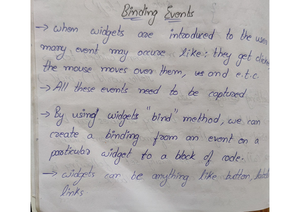 Binding Events
→ when widgets are intoduced to the user
many event may occure like: they get click
the mouse moves over them, us and e.t.c.
→ All these events need to be captured
→ By using widgets "bind" method, we can
create a binding from an event on a
particular widget to a block of code.
→ widgets can be anything like button,
links